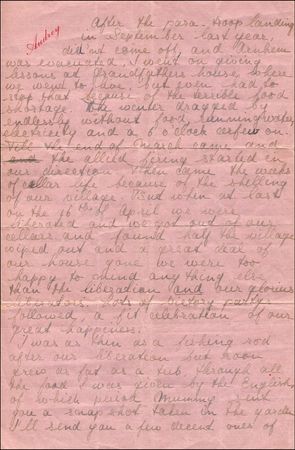 Audrey
After the para-troop landing
in september last year,
did'nt come off, and Arnhem
was evacuated, I went on giving
lessons at Grandfathers house, where
we went to, but soon had to
stop that because of the terrible food
shortage. The winter dragged by
endlessly without food, running water,
electricity and a 6 o'clock curfew on.
Till the end of March came and
and the allied firing started in
our direction. Then came the weeks
of cellar life because of the shelling
of our village. But when at last
on the 16th April we were
liberated and we got out of our
cellars and found half the village
wiped out and a great deal of
our house gone we were too
happy to mind anything else
than the liberation and our glorious
liberators. Lots of victory partys
followed, a fit celebration of our
great happiness.
I was as thin as a fishing rod
after our liberation but soon
grew as fat as a tub, through all
the food I was given by the English,
of which period Mummy sent
you a snapshot taken in the garden
I'll send you a few decent ones of